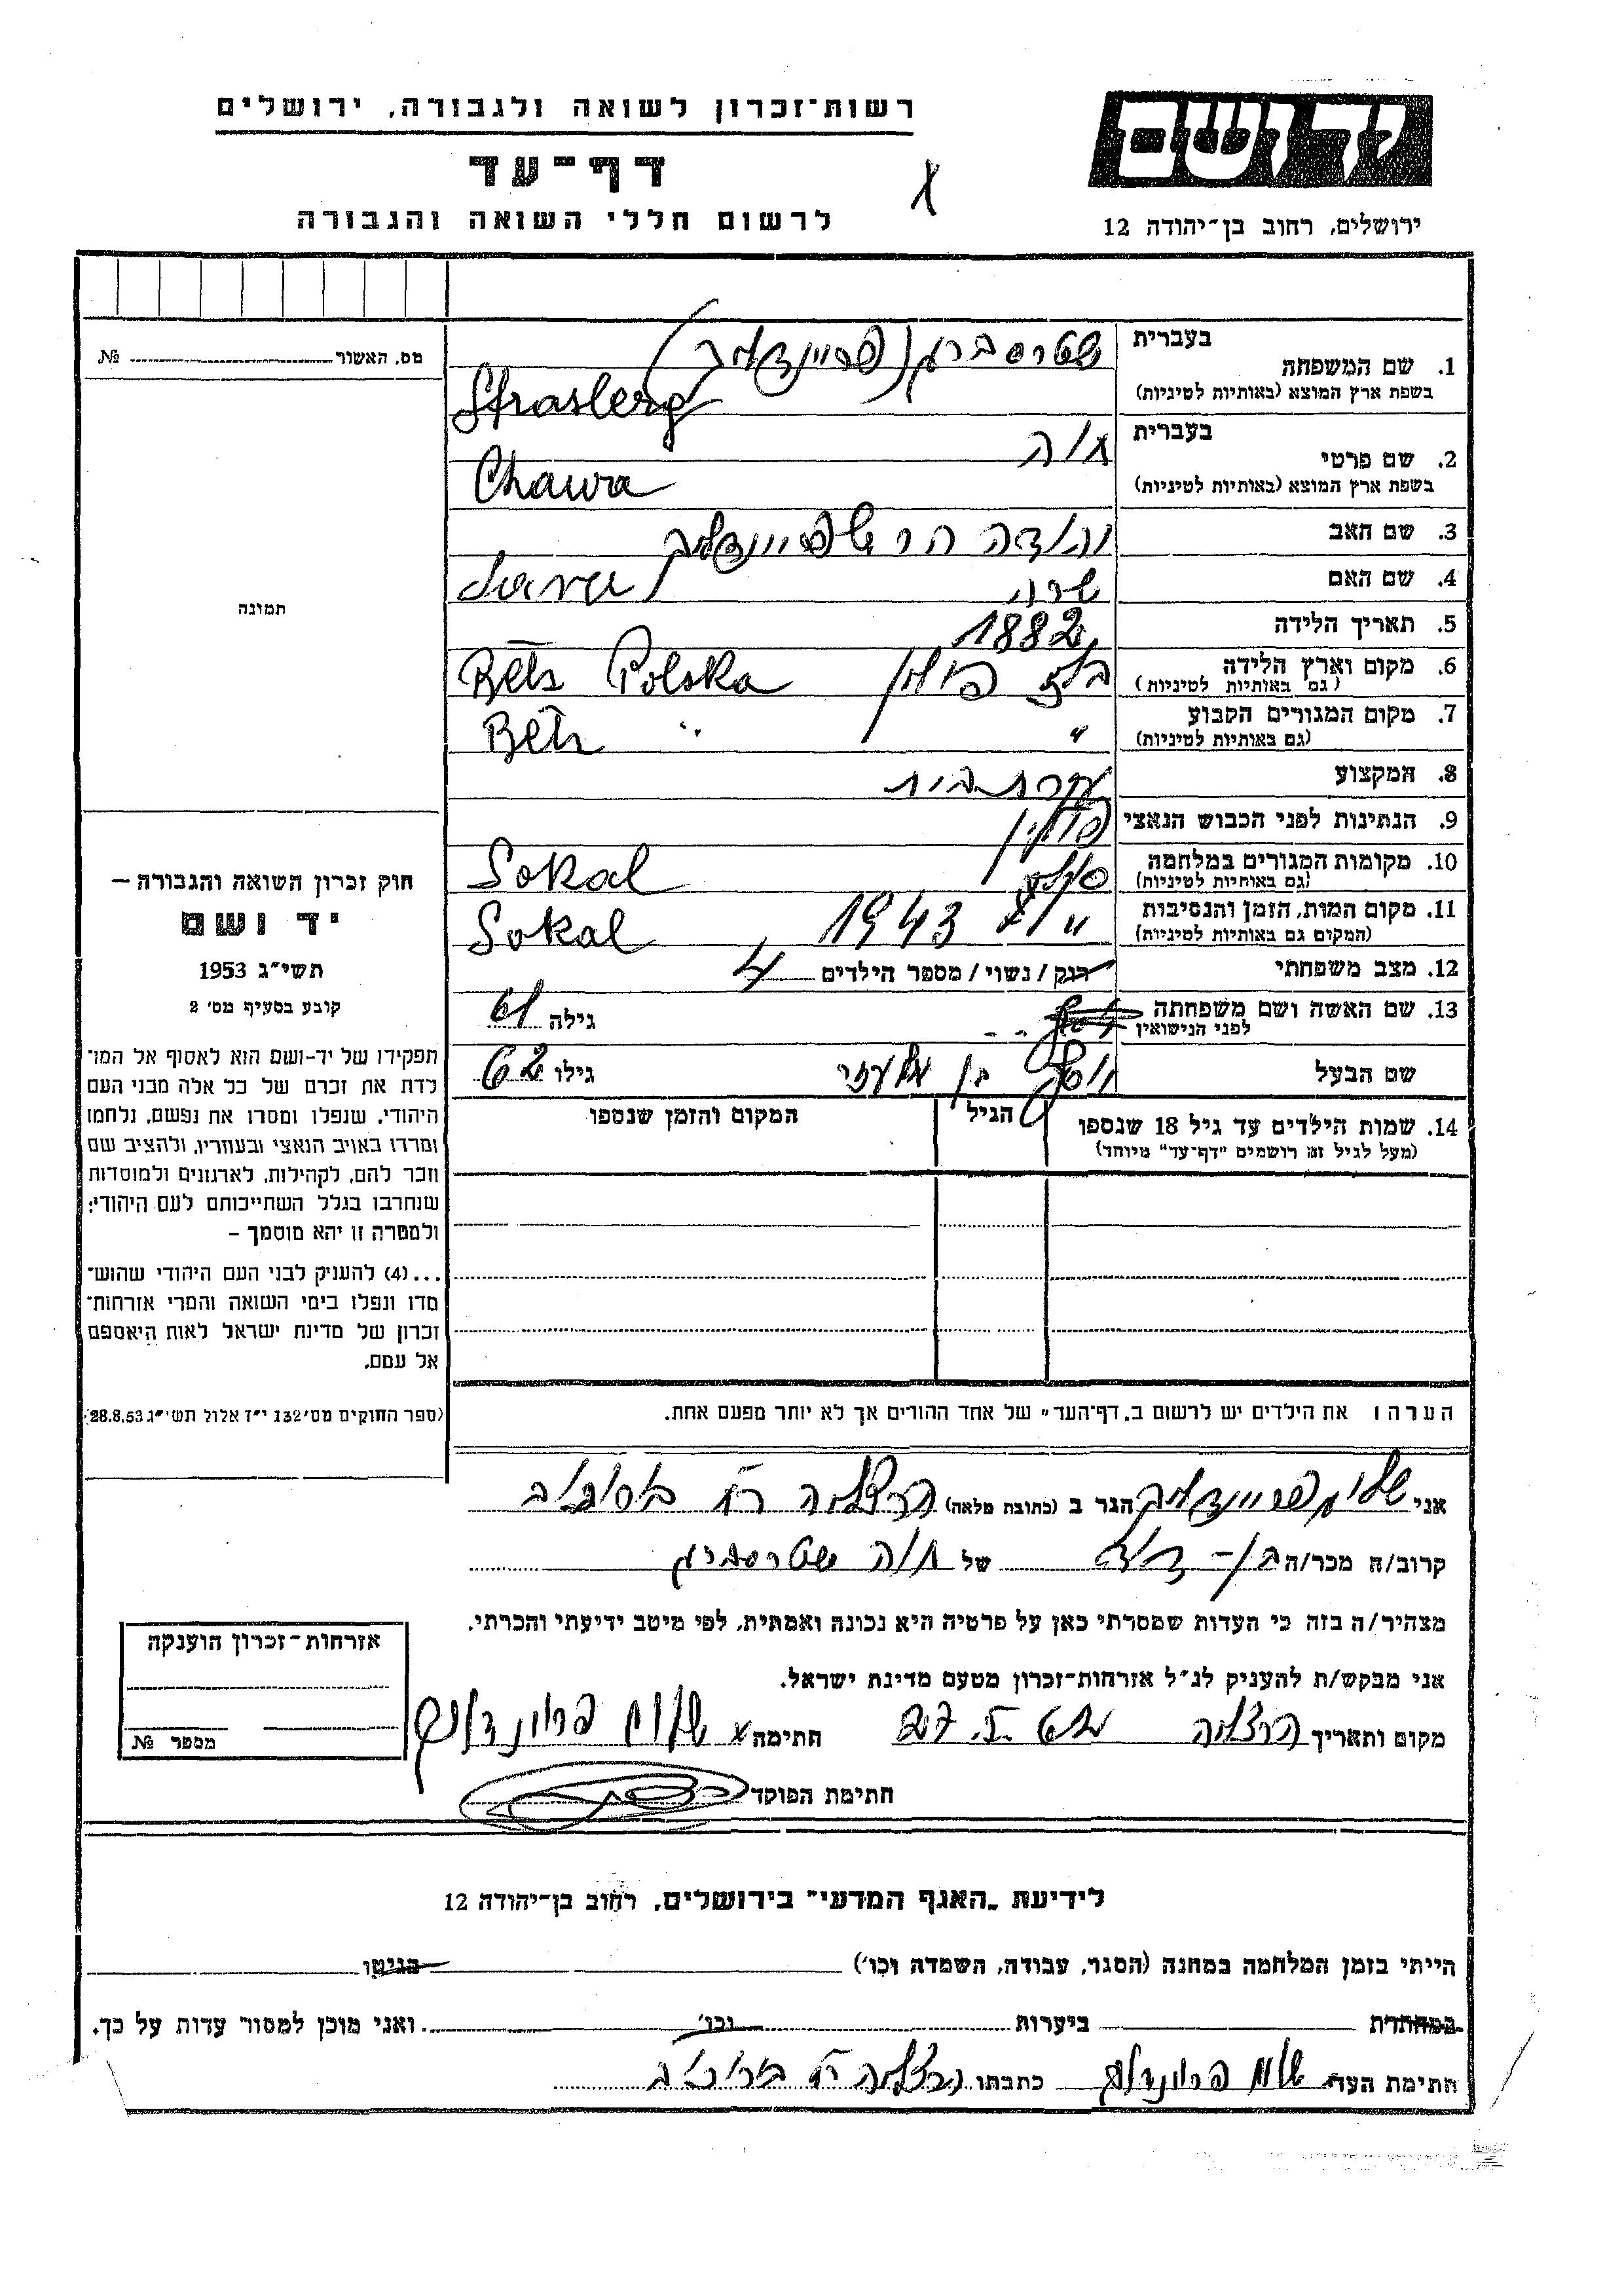 רשות־זכרון לשואה ולגבורה, ירושלים
דף־עד
לרשום חללי השואה והגבורה
יד ושם
ירושלים, רחוב בן־יהודה 12
מס. האשור № 
תמונה
חוק זכרון השואה והגבורה –
יד ושם
תשי״ג 1953
קובע בסעיף מס׳ 2
תפקידו של יד-ושם הוא לאסוף אל המו־
לדת את זכרם של כל אלה מבני העם
היהודי, שנפלו ומסרו את נפשם, נלחמו
ומרדו באויב הנאצי ובעוזריו, ולהציב שם
וזכר להם, לקהילות, לארגונים ולמוסדות
שנחרבו בגלל השתייכותם לעם היהודי;
ולמטרה זו יהא מוסמך –
...(4) להעניק לבני העם היהודי שהוש־
מדו ונפלו בימי השואה והמרי אזרחות־
זכרון של מדינת ישראל לאות היאספם
אל עמם.
(ספר החוקים מס׳ 132 י״ז אלול תשי״ג 28.8.53)
בעברית שטרסברג (פריינדליך)
1. שם המשפחה
בשפת ארץ המוצא (באותיות לטיניות) Strasberg
בעברית חוה
2. שם פרטי
בשפת ארץ המוצא (באותיות לטיניות) Chawa
3. שם האב יהודה הרש פריינדליך
4. שם האם שרה Sara
5. תאריך הלידה 1882
6. מקום וארץ הלידה בלז פולין Bełz Polska
(גם באותיות לטיניות)
7. מקום המגורים הקבוע " Bełz "
(גם באותיות לטיניות)
8. המקצוע עקרת בית
9. הנתינות לפני הכבוש הנאצי פולין
10. מקומות המגורים במלחמה סוקל Sokal
(גם באותיות לטיניות)
11. מקום המות, הזמן והנסיבות " 1943 Sokal
(המקום גם באותיות לטיניות)
12. מצב משפחתי רוק / נשוי / מספר הילדים 4
13. שם האשה ושם משפחתה גילה 61
לפני הנישואין
שם הבעל יוסף בן אלעזר גילו 62
14. שמות הילדים עד גיל 18 שנספו הגיל המקום והזמן שנספו
(מעל לגיל זה רושמים "דף־עד" מיוחד)
הערה: את הילדים יש לרשום ב„דף־העד״ של אחד ההורים אך לא יותר מפעם אחת.
אני שלום פריינדליך הגר ב (כתובת מלאה) הרצליה רח
קרוב/ה מכר/ה בן-דוד של חוה שטרסברג
מצהיר/ה בזה כי העדות שמסרתי כאן על פרטיה היא נכונה ואמתית, לפי מיטב ידיעתי והכרתי.
אני מבקש/ת להעניק לנ״ל אזרחות־זכרון מטעם מדינת ישראל.
מקום ותאריך הרצליה 27. 5. חתימה x שלום פרוינדליך
חתימת הפוקד
אזרחות־זכרון הוענקה
מספר №
לידיעת „האגף המדעי״ בירושלים, רחוב בן־יהודה 12
הייתי בזמן המלחמה במחנה (הסגר, עבודה, השמדה וכו׳) בגיטו
במחתרת ביערות וכו׳ ואני מוכן למסור עדות על כך.
חתימת העד שלום פרוינדליך כתבתו הרצליה רח